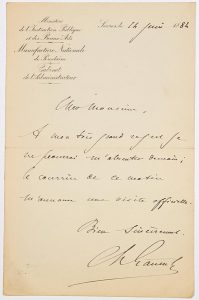 Ministère
de l'Instruction Publique
et des Beaux-Arts
Manufacture Nationale
de Porcelaine
Cabinet
de l'Administrateur
Sèvres, le 24 Juin 1884
Cher Monsieur,
A mon très grand regret je
ne pourrai m'absenter demain;
le courrier de ce matin
m'annonce une visite officielle.
Bien sincèrement
Ch Lauth